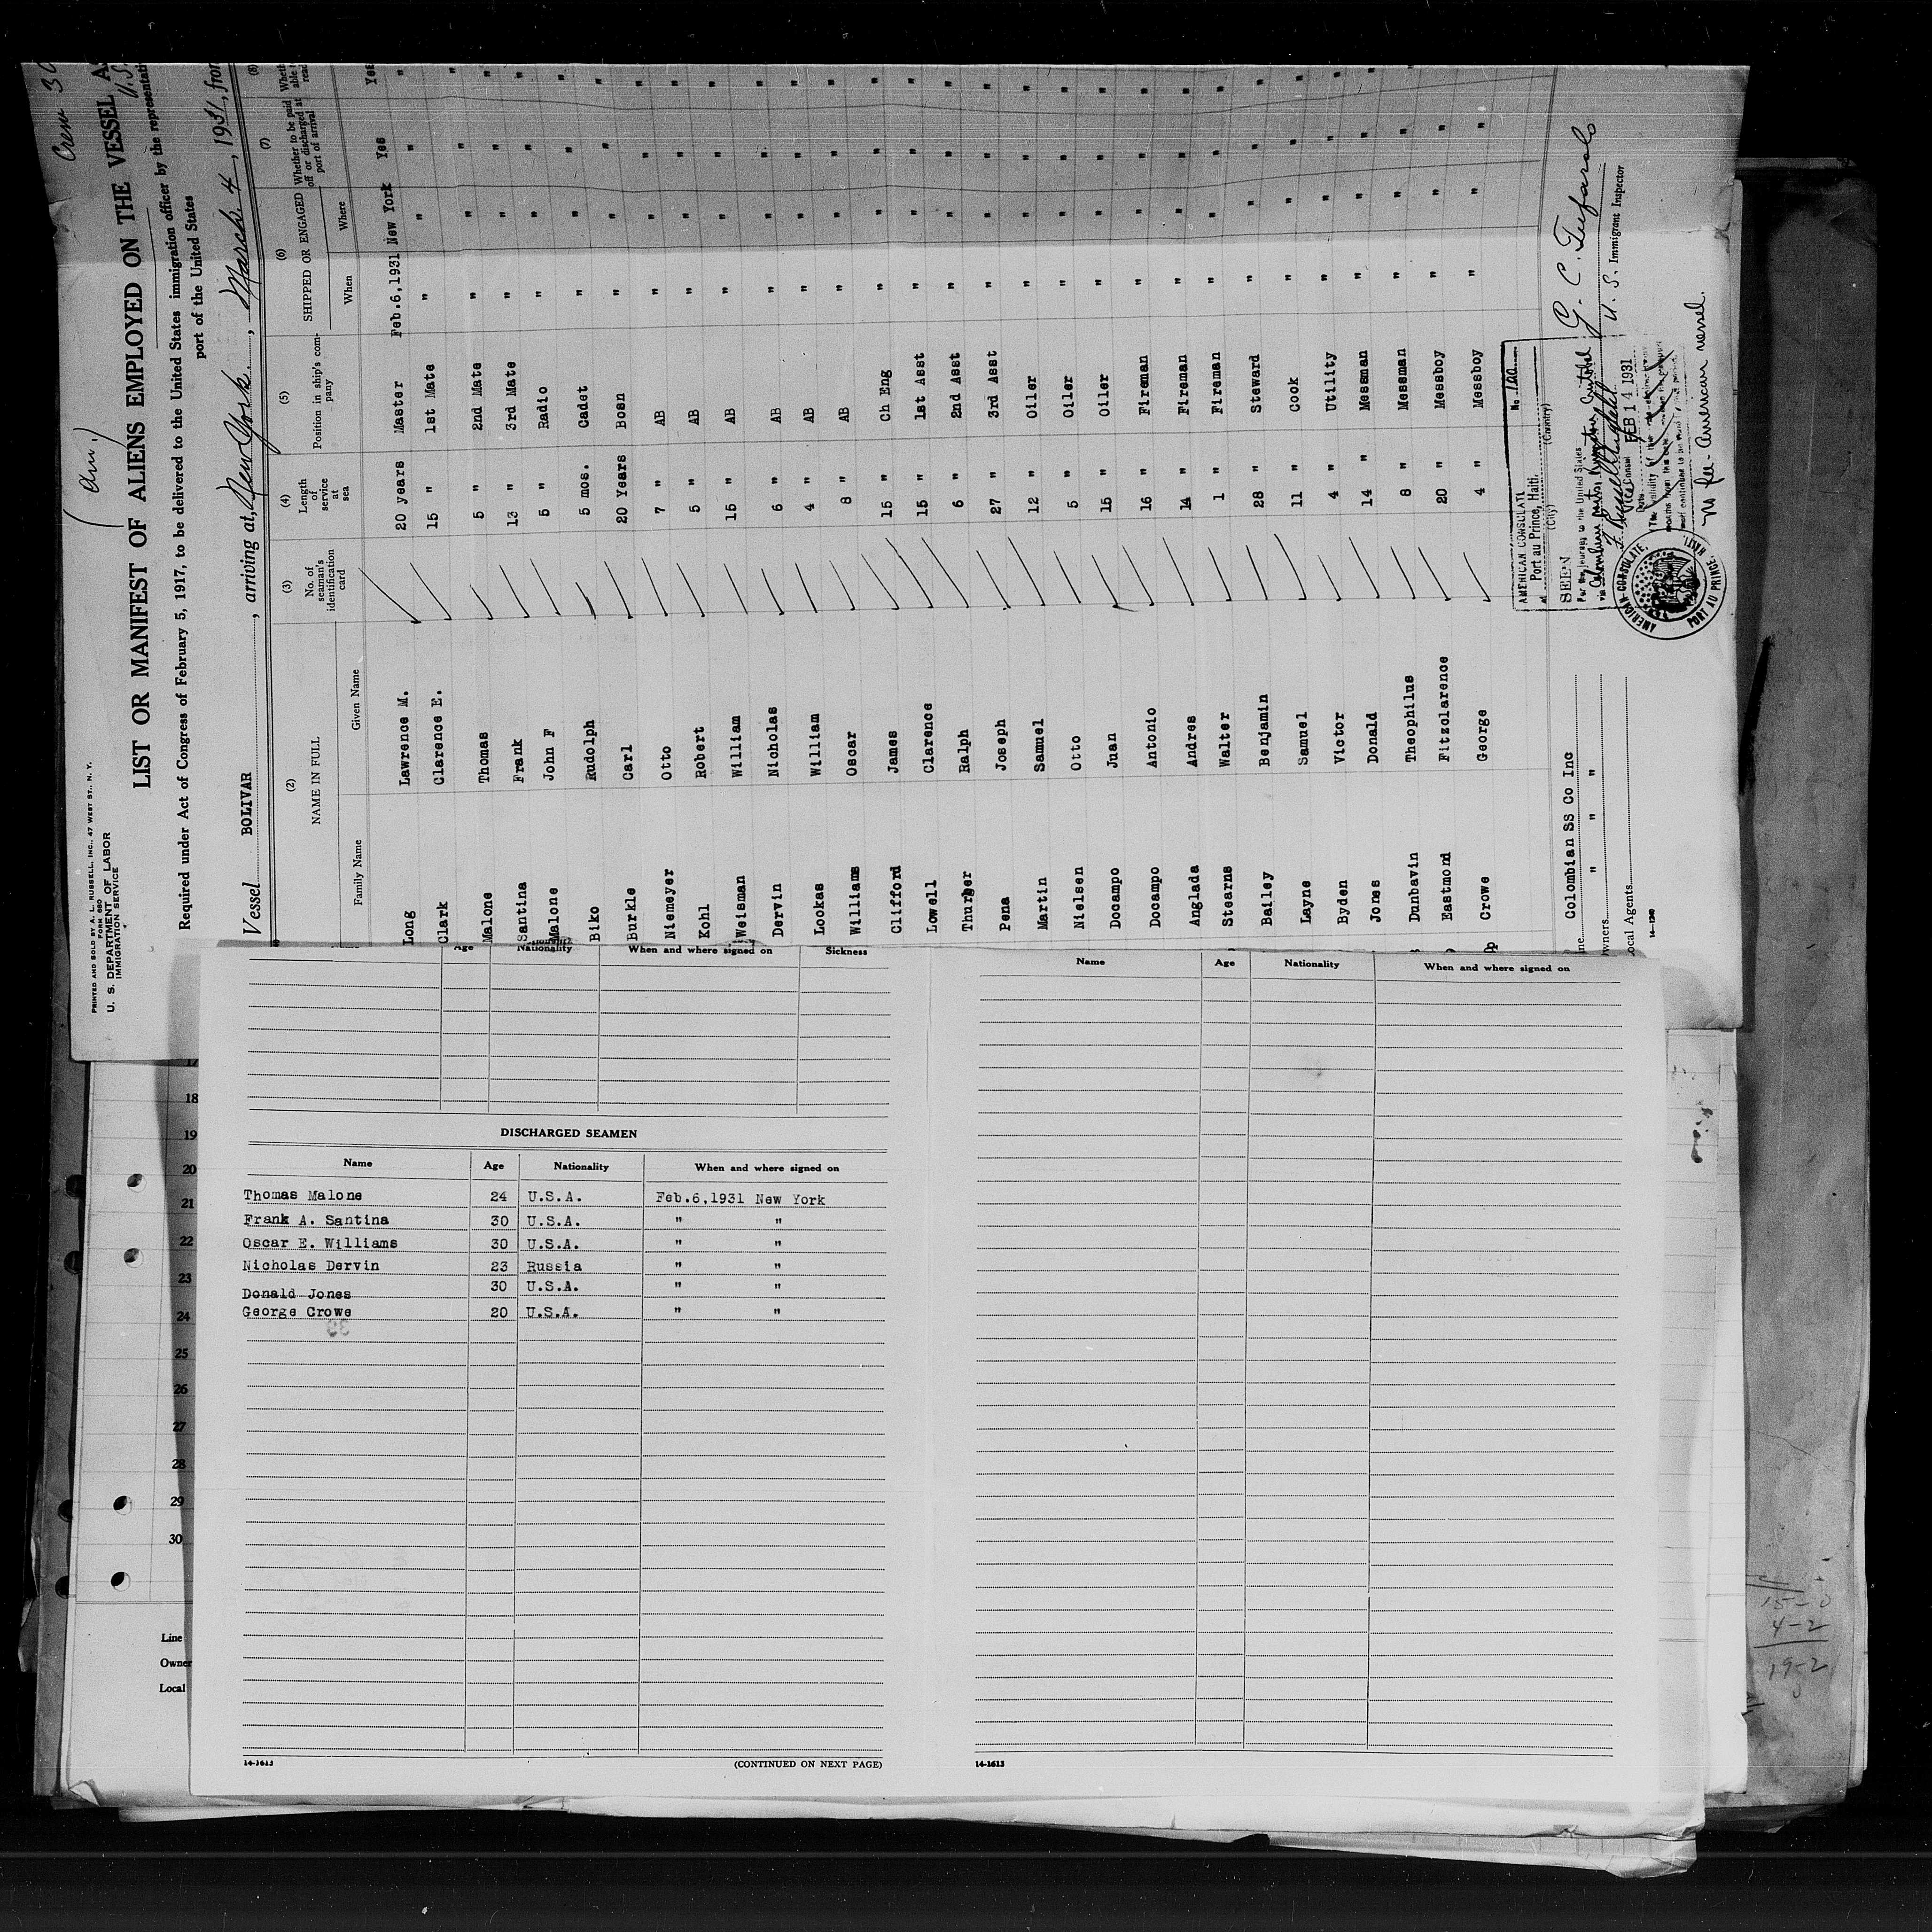 Crew 30
(Am.)
PRINTED AND SOLD BY A. L. RUSSELL, INC., 47 WEST ST., N. Y.
FORM 680
U. S. DEPARTMENT OF LABOR
IMMIGRATION SERVICE
U.S.
LIST OR MANIFEST OF ALIENS EMPLOYED ON THE VESSEL AS
Required under Act of Congress of February 5, 1917, to be delivered to the United States immigration officer by the representati
port of the United States
Vessel BOLIVAR, arriving at New York, March 4, 1931, from
(2) (3) (4) (5) (6) (7) (8)
NAME IN FULL No. of seaman's identification card Length of service at sea Position in ship's company SHIPPED OR ENGAGED Whether to be paid off or discharged at port of arrival Wheth able to read
Family Name Given Name When Where
Long Lawrence M. 20 years Master Feb.6,1931 New York Yes Yes
Clark Clarence E. 15 " 1st Mate " " " "
Malone Thomas 5 " 2nd Mate " " " "
Santina Frank 13 " 3rd Mate " " " "
Malone John F 5 " Radio " " " "
Biko Rudolph 5 mos. Cadet " " " "
Burkle Carl 20 Years Bosn " " " "
Niemeyer Otto 7 " AB " " " "
Kohl Robert 5 " AB " " " "
Weisman William 15 " AB " " " "
Dervin Nicholas 6 " AB " " " "
Lookas William 4 " AB " " " "
Williams Oscar 8 " AB " " " "
Clifford James 15 " Ch Eng " " " "
Lowell Clarence 15 " 1st Asst " " " "
Thurger Ralph 6 " 2nd Asst " " " "
Pena Joseph 27 " 3rd Asst " " " "
Martin Samuel 12 " Oiler " " " "
Nielsen Otto 5 " Oiler " " " "
Docampo Juan 15 " Oiler " " " "
Docampo Antonio 16 " Fireman " " " "
Anglada Andres 14 " Fireman " " " "
Stearns Walter 1 " Fireman " " " "
Bailey Benjamin 28 " Steward " " " "
Layne Samuel 11 " Cook " " " "
Byden Victor 4 " Utility " " " "
Jones Donald 14 " Messman " " " "
Dunbavin Theophilus 8 " Messman " " " "
Eastmond Fitzclarence 20 " Messboy " " " "
Crowe George 4 " Messboy " " "
AMERICAN CONSULATE No. 100
at Port au Prince, Haiti.
(City) (Country)
SEEN
For the journey to the United States
via
FEB 14 1931
AMERICAN CONSULATE,
PORT AU PRINCE, HAITI.
No fee - American vessel.
G. C. Tufarolo
U. S. Immigrant Inspector
ine Colombian SS Co Inc
wners " " "
ocal Agents
14-1240
Age Nationality When and where signed on Sickness
DISCHARGED SEAMEN
Name Age Nationality When and where signed on
Thomas Malone 24 U.S.A. Feb.6,1931 New York
Frank A. Santina 30 U.S.A. " "
Oscar E. Williams 30 U.S.A. " "
Nicholas Dervin 23 Russia " "
Donald Jones 30 U.S.A. " "
George Crowe 20 U.S.A. " "
14-1613
(CONTINUED ON NEXT PAGE)
Name Age Nationality When and where signed on
14-1613
17
18
19
20
21
22
23
24
25
26
27
28
29
30
Line
Owner
Local
15-0
4-2
19-2